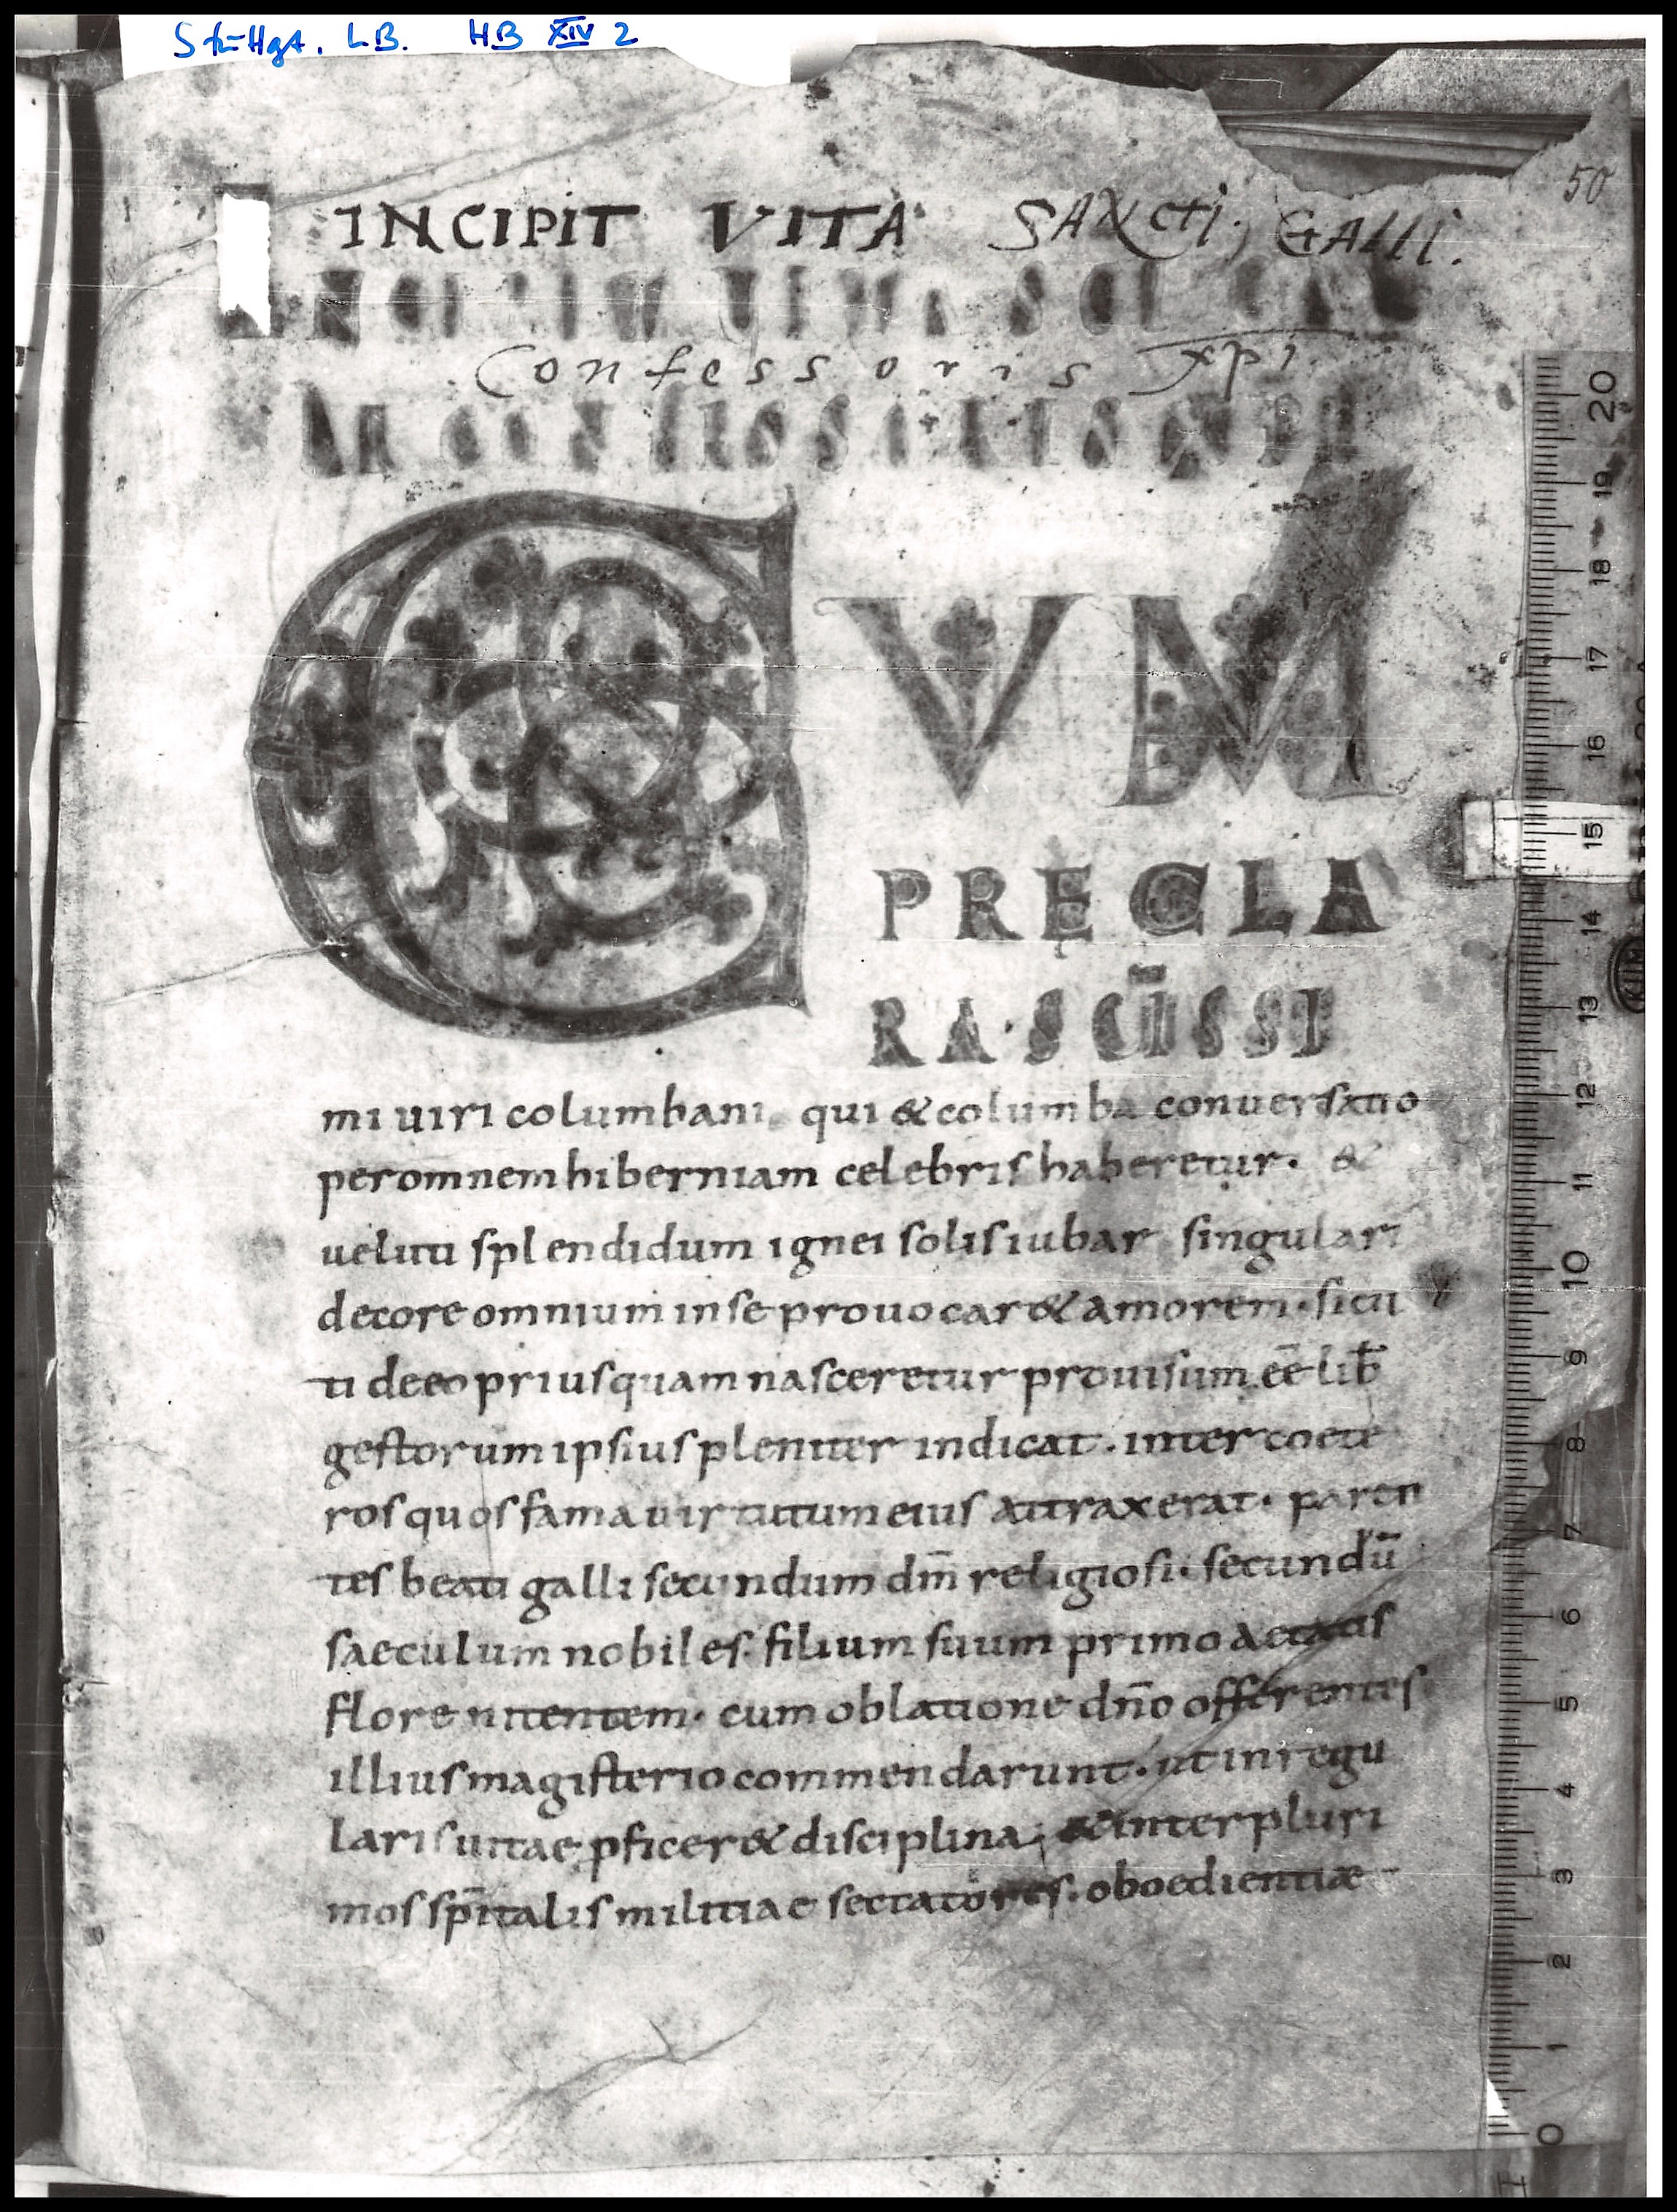 Stuttgt. LB. HB XIV 2
50
INCIPIT VITA SANCTI GALLI.
INCIPIT UITA SCI GAL
Confessoris xpi
LI CONFESSORIS XPI
CUM
PRĘCLA
RA SCĪSSI
mi uiri columbani qui & columba conuersatio
per omnem hiberniam celebris haberetur. &
ueluti splendidum ignei solis iubar singulari
decore omnium in se prouocar& amorem. sicu
ti de eo priusquam nasceretur prouisum eē lib̄
gestorum ipsius pleniter indicat. inter coete
ros quos fama uirtutum eius attraxerat. paren
tes beati galli secundum dm̄ religiosi. secundū
saeculum nobiles. filium suum primo aetatis
flore nitentem. cum oblatione dn̄o offerentes
illius magisterio commendarunt. ut in regu
laris uitae pficer& disciplina; & inter pluri
mos sp̄italis militiae sectatores. oboedientiae
20
19
18
17
16
15
14
13
12
11
10
9
8
7
6
5
4
3
2
1
0